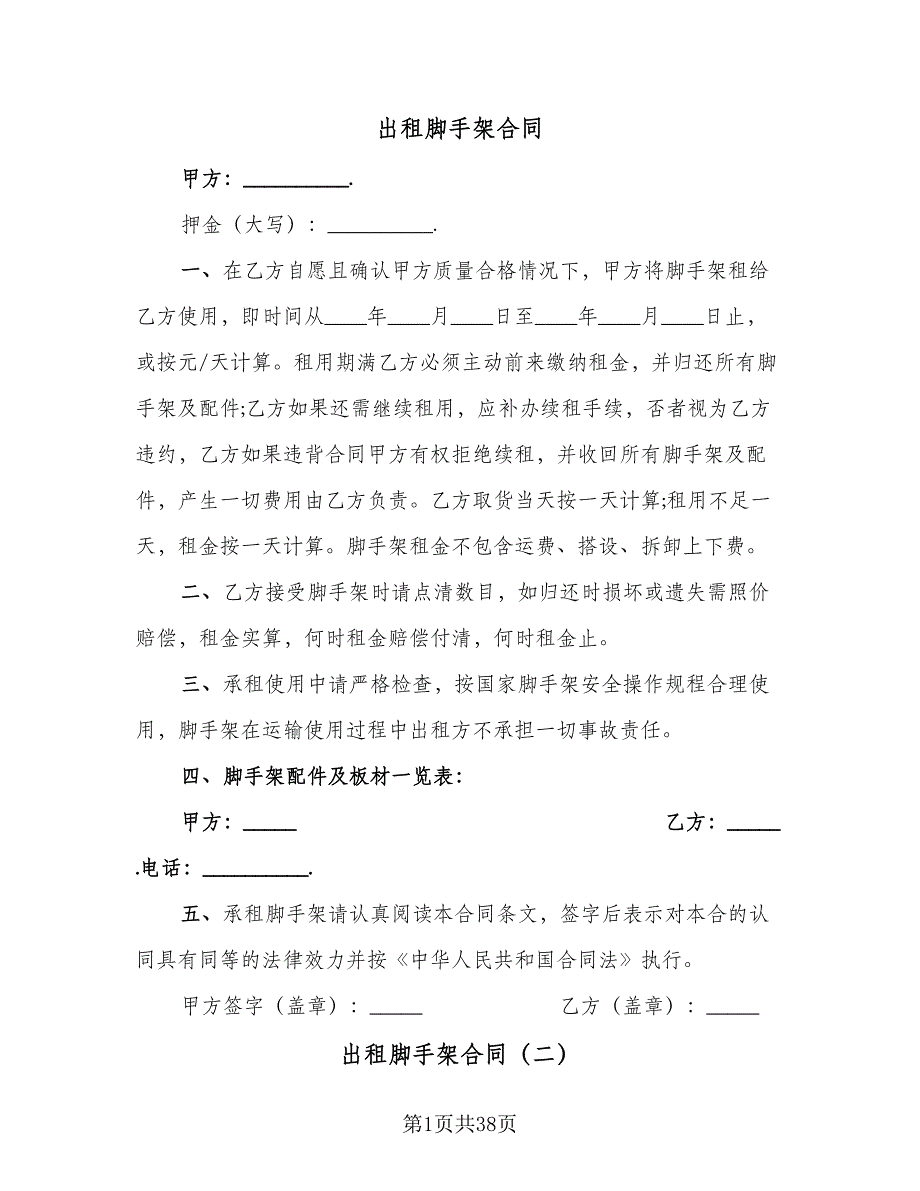 出租脚手架合同
甲方：__________.
押金（大写）：__________.
一、在乙方自愿且确认甲方质量合格情况下，甲方将脚手架租给
乙方使用，即时间从____年____月____日至____年____月____日止，
或按元/天计算。租用期满乙方必须主动前来缴纳租金，并归还所有脚
手架及配件;乙方如果还需继续租用，应补办续租手续，否者视为乙方
违约，乙方如果违背合同甲方有权拒绝续租，并收回所有脚手架及配
件，产生一切费用由乙方负责。乙方取货当天按一天计算;租用不足一
天，租金按一天计算。脚手架租金不包含运费、搭设、拆卸上下费。
二、乙方接受脚手架时请点清数目，如归还时损坏或遗失需照价
赔偿，租金实算，何时租金赔偿付清，何时租金止。
三、承租使用中请严格检查，按国家脚手架安全操作规程合理使
用，脚手架在运输使用过程中出租方不承担一切事故责任。
四、脚手架配件及板材一览表：
甲方：_____ 乙方：_____
.电话：__________.
五、承租脚手架请认真阅读本合同条文，签字后表示对本合的认
同具有同等的法律效力并按《中华人民共和国合同法》执行。
甲方签字（盖章）：_____ 乙方（盖章）：_____
出租脚手架合同（二）
第1页共38页